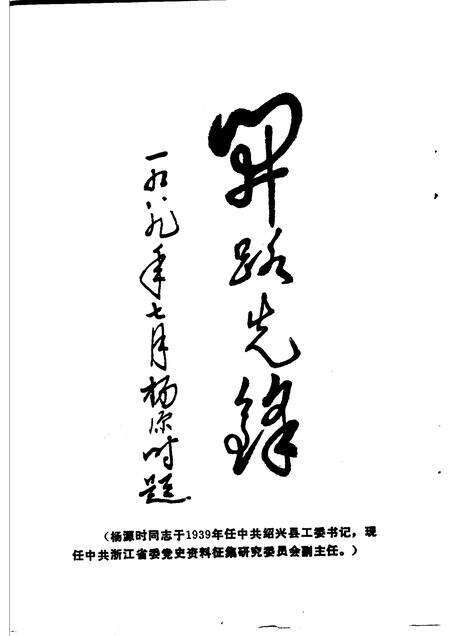 開路先锋
一九八九年七月杨源时题
（杨源时同志于1939年任中共绍兴县工委书记，现
任中共浙江省委党史资料征集研究委员会副主任。）